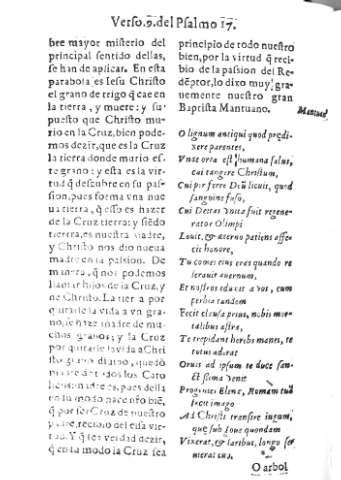 Verso.9.del Psalmo 17.
bre mayor misterio del
principal sentido dellas,
se han de aplicar. En esta
parabola es Iesu Christo
el grano de trigo q̃ cae en
la tierra, y muere: y su-
puesto que Christo mu-
rio en la Cruz, bien pode-
mos dezir, que es la Cruz
la tierra donde murio es-
te grano: y esta es la vir-
tud q̃ descubre en su pas-
sion, pues forma vna nue
ua tierra, q̃ esso es hazer
de la Cruz tierra: y siẽdo
tierra, es nuestra madre,
y Christo nos dio nueua
madre en la passion. De
manera, q̃ nos podemos
llamar hijos de la Cruz, y
de Christo. La tierra por
quitarle la vida a vn gra-
no, se haze madre de mu-
chos granos; y la Cruz
por quitarle la vida a Chri
sto grano diuino, quedò
madre de todos los Cato
licos: madre es, pues della
en su modo nacemos biẽ,
q̃ por ser Cruz de nuestro
padre, recibio del essa vir-
tud. Y q̃ sea verdad dezir,
q̃ en su modo la Cruz sea
principio de todo nuestro
bien, por la virtud q̃ reci-
bio de la passion del Re-
dẽptor, lo dixo muy gra-
uemente nuestro gran
Baptista Mantuano.
Mantuan.
O lignum antiqui quod prędi-
xere parentes,
Vnde orta est humana salus,
cui tangere Christum,
Cui pir ferre Deũ licuit, quod
sanguine fuso,
Cui Deitas
fuit regene-
rator Olimpi
Louit, & æterno patiens affe-
cit honore,
Tu comes eius eras quando re
serauit auernum,
Et nostros
a vos, cum
perbia tandem
Fecit
clausa prius, nobis mor-
talibus astra,
Te trepidant herebi manes, te
tutus aderat
Orcus ad ipsum te duce san-
Et
Progenies Elenę, Romam tua
fecit imago
Ad Christi transire iugum,
quę sub Ioue quondam
Vixerat, & laribus, longo ser
uierat sus,
O arbol